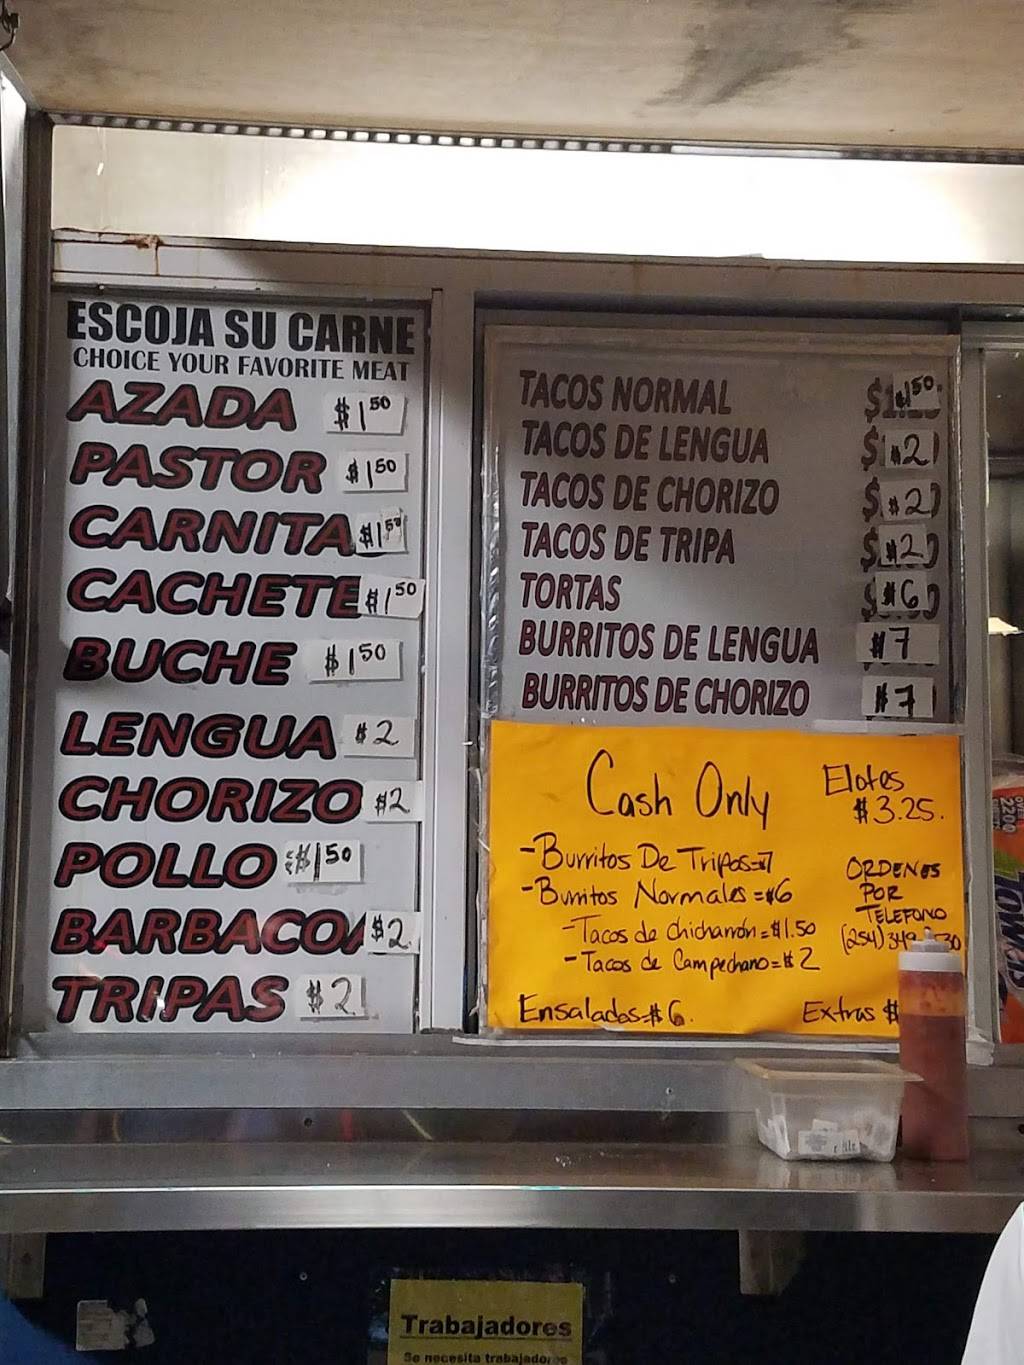 ESCOJA SU CARNE
CHOICE YOUR FAVORITE MEAT
AZADA $1 50
PASTOR $1 50
CARNITA $1 50
CACHETE $1 50
BUCHE $1 50
LENGUA $2
CHORIZO $2
POLLO $1 50
BARBACOA $2
TRIPAS $2
TACOS NORMAL $1 50
TACOS DE LENGUA $2
TACOS DE CHORIZO $2
TACOS DE TRIPA $2
TORTAS $6
BURRITOS DE LENGUA $7
BURRITOS DE CHORIZO $7
Cash Only
Elotes
$3.25.
-Burritos De Tripas=$7
-Burritos Normales=$6
-Tacos de Chicharrón=$1.50
-Tacos de Campechano=$2
Ensaladas=$6.
ORDENES
POR
TELEFONO
(254)
Extras $
2200
TOWELS
Trabajadores
Se necesita trabajadores